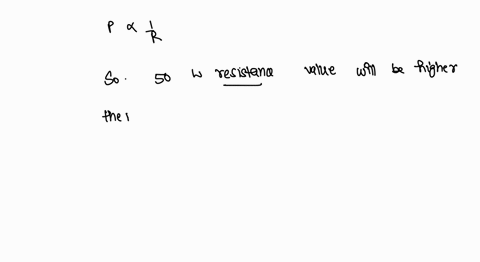 P ∝ 1/R
So. 50 W resistance value will be higher
the